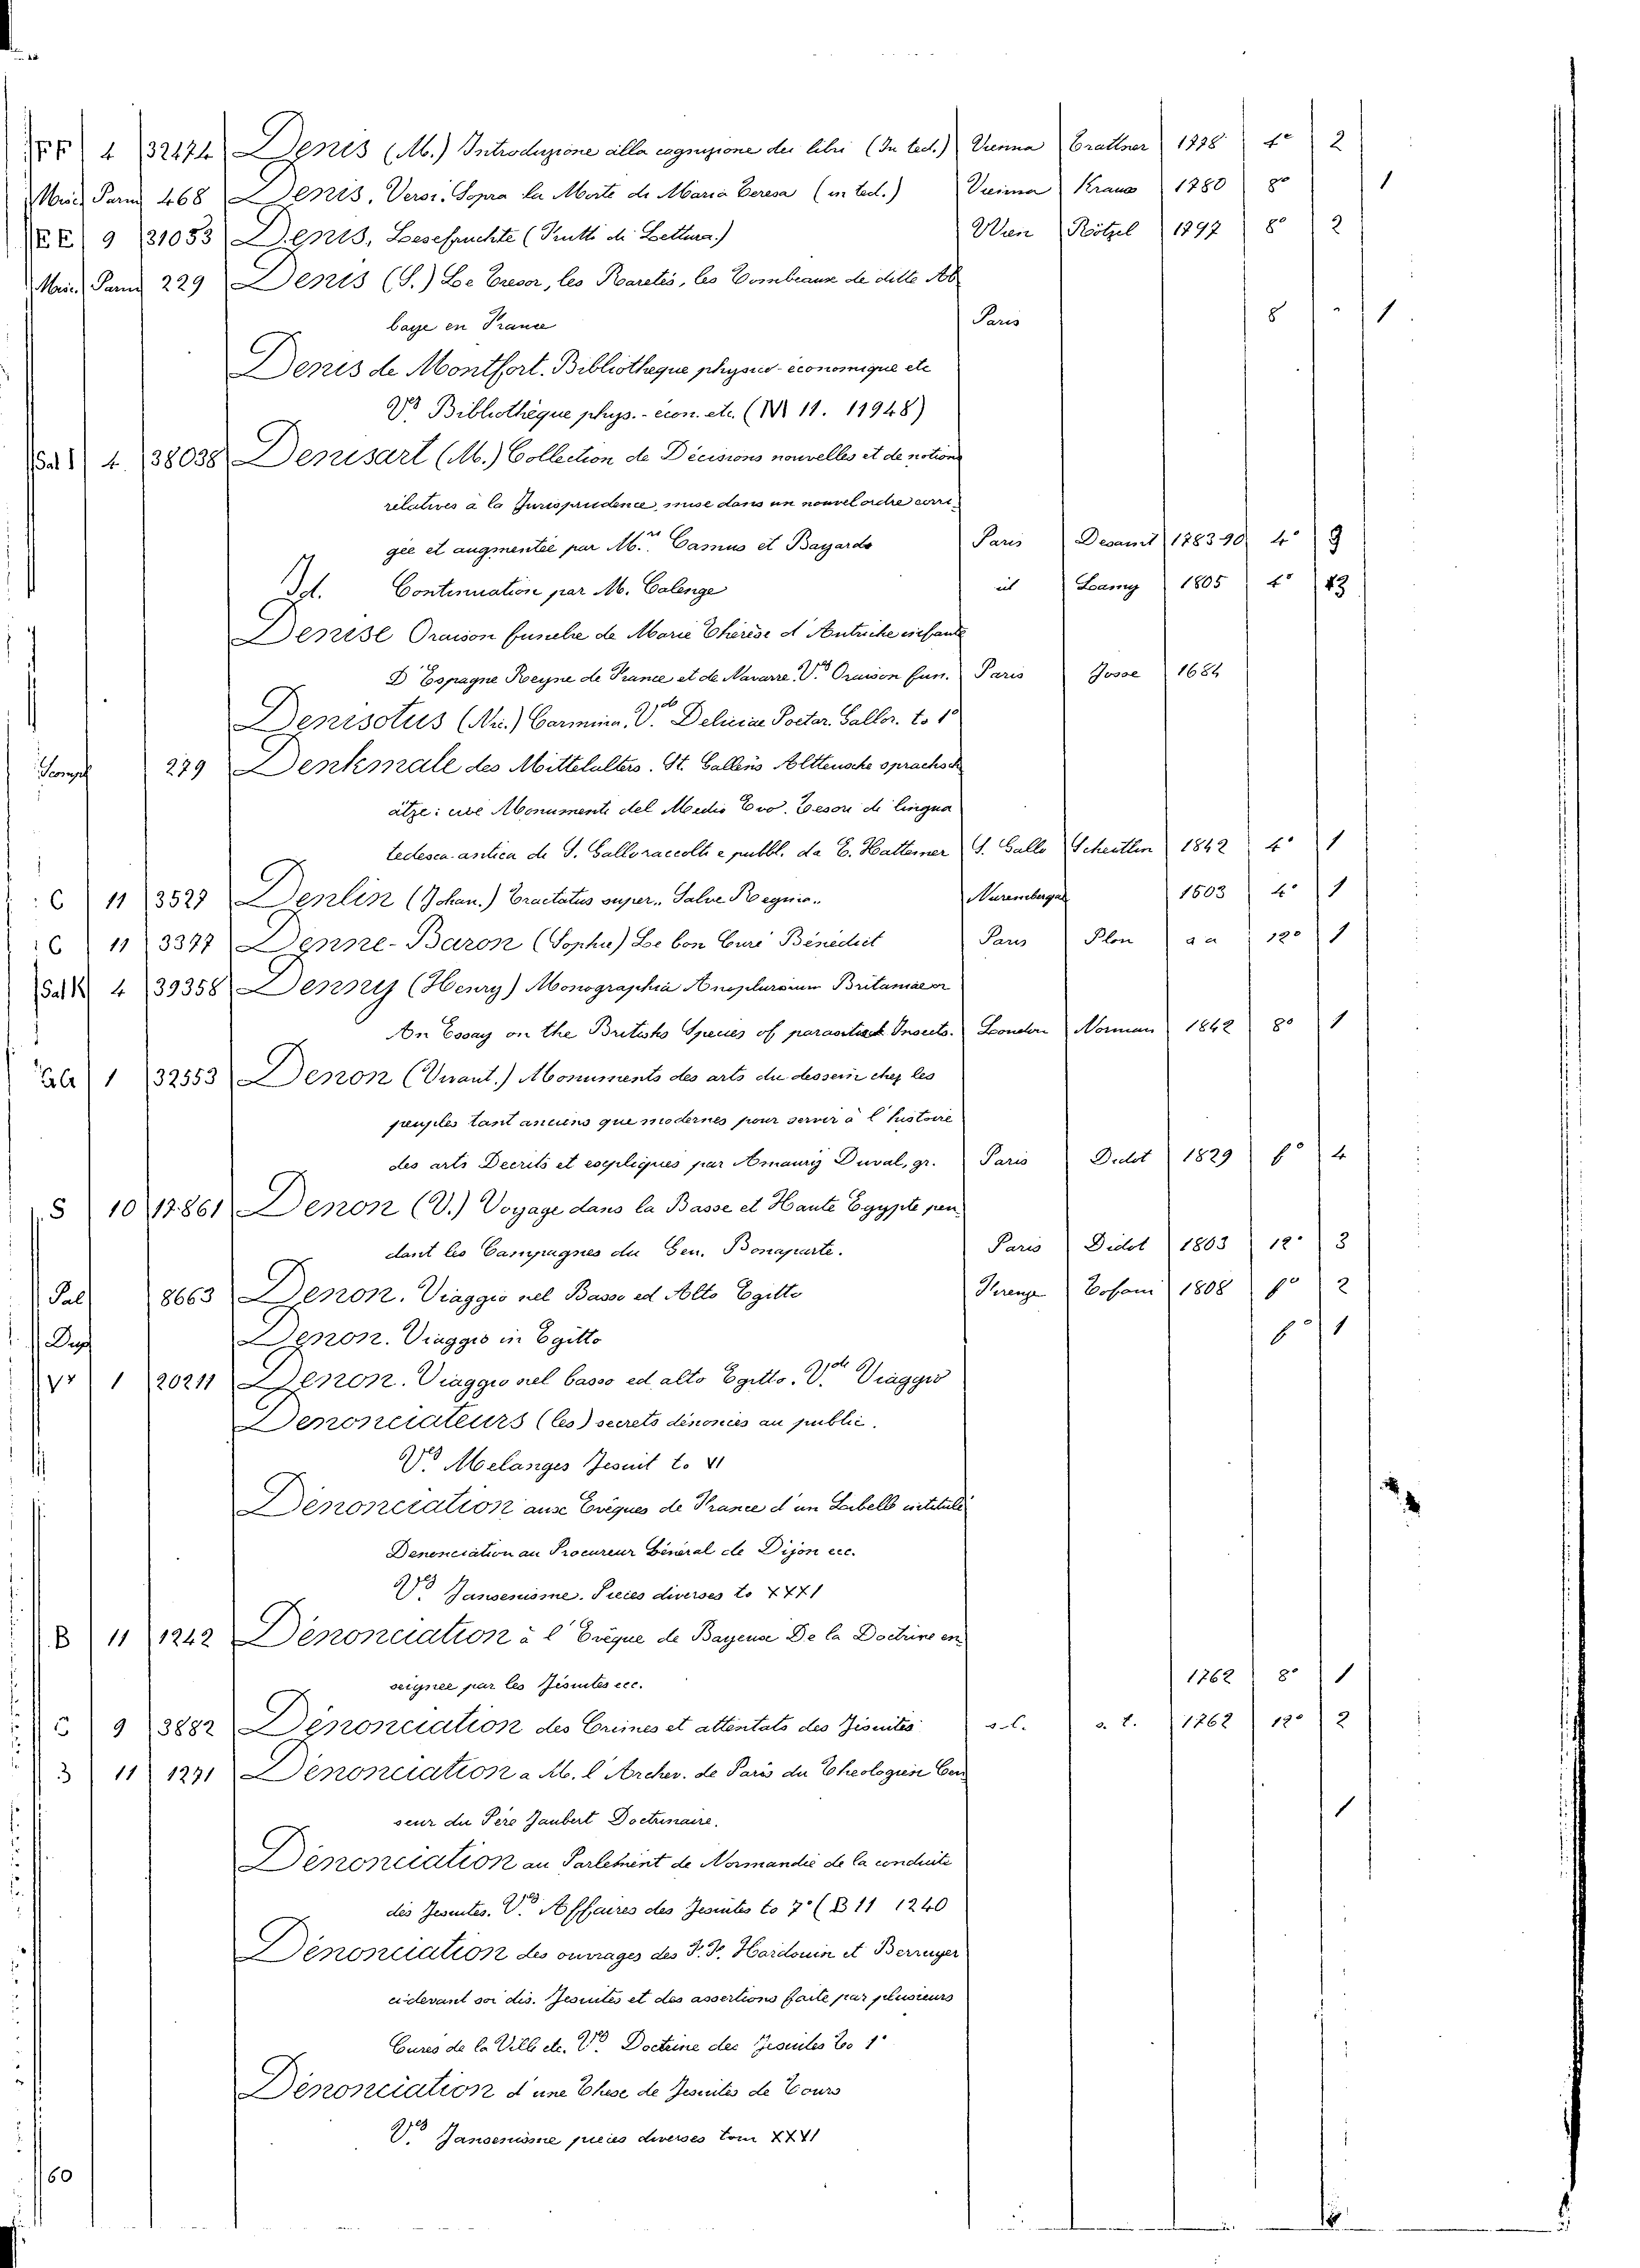 FF 4 32474 Denis (M.) Introduzione alla cognizione dei libri (In ted.) Vienna Trattner 1778 4° 2
Parm 468 Denis. Versi. Sopra la Morte di Maria Teresa (in ted.) Vienna Kraus 1780 8° 1
EE 9 21053 Denis, Lesefruchte (Frutti di Lettura.) Wien Rötzel 1797 8° 2
Parm 229 Denis (S.) Le Tresor, les Raretés, les Tombeaux de ditte Ab
baye en France Paris 8 - 1
Denis de Montfort. Bibliotheque physico-économique etc
Vd Bibliothèque phys.-écon. etc. (M 11. 11948)
Sal 1 4. 38038 Denisart (M.) Collection de Décisions nouvelles et de notions
relatives à la Jurisprudence, mise dans un nouvel ordre corri
gée et augmentée par M.rs Camus et Bayards Paris Desaint 1783-90 4° 9
Id. Continuation par M. Calenge id Lamy 1805 4° 13
Denise Oraison funebre de Marie Thérèse d'Autriche infante
D'Espagne Reyne de France et de Navarre. Vd Oraison fun. Paris Josse 1684
Denisotus (Nic.) Carmina. Vd Deliciae Poetar. Gallor. to 1°
279 Denkmale des Mittelalters. St. Gallens Altteusche sprachsch
ätze: cioè Monumenti del Medio Evo. Tesori di lingua
tedesca antica di S. Gallo raccolti e pubbl. da E. Hattemer S. Gallo Scheitlin 1842 4° 1
C 11 3527 Denlin (Johan.) Tractatus super „Salve Regina„ Nurembergae 1503 4° 1
C 11 3377 Denne-Baron (Sophie) Le bon Curé Bénédict Paris Plon a a 12° 1
Sal K 4 39358 Denny (Henry) Monographia Anoplurorum Britaniae or
An Essay on the Britishs Species of parasitiack Insects. London Norman 1842 8° 1
1 32553 Denon (Vivant.) Monuments des arts du dessein chez les
peuples tant anciens que modernes pour servir à l'histoire
des arts Decrits et expliqués par Amaury Duval, gr. Paris Didot 1829 f° 4
S 10 17.861 Denon (V.) Voyage dans la Basse et Haute Egypte pen
dant les Campagnes du Gen. Bonaparte. Paris Didot 1803 12° 3
Pal 8663 Denon. Viaggio nel Basso ed Alto Egitto Firenze Tofani 1808 f° 2
Dup Denon. Viaggio in Egitto f° 1
1 20211 Denon. Viaggio nel basso ed alto Egitto. Vde Viaggio
Denonciateurs (les) secrets dénoncés au public.
Vd Melanges Jesuit t. VI
Dénonciation aux Evéques de France d'un Libelle intitulé
Denonciation au Procureur Général de Dijon ecc.
Vd Jansenisme. Pieces diverses to XXXI
B 11 1242 Dénonciation à l'Evéque de Bayeux De la Doctrine en
seignee par les Jesuites ecc. 1762 8° 1
C 9 3882 Dénonciation des Crimes et attentats des Jisuites s. l. s. t. 1762 12° 2
11 1271 Denonciation a M. l'Archev. de Paris du Theologien Cen
seur du Pere Jaubert Doctrinaire. 1
Dénonciation au Parlement de Normandie de la conduite
des Jesuites. Vd Affaires des Jesuites to 7° (B 11 1240
Dénonciation des ouvrages des P. P. Hardouin et Berruyer
cidevant soi dis. Jesuites et des assertions faite par plusieurs
Cures de la Ville etc. Vd Doctrine des Jesuites to 1°
Dénonciation d'une These de Jesuites de Tours
Vd Jansenisme pieces diverses tom XXVI
60